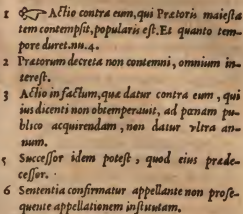 1 ☞ Actio contra eum, qui Prætoris maiesta
tem contempsit, popularis est. Et quanto tem-
pore duret. nu. 4.
2 Prætorum decreta non contemni, omnium in-
terest.
3 Actio in factum, quæ datur contra eum, qui
ius dicenti non obtemperauit, ad pœnam pu-
blico acquirendam, non datur vltra an-
num.
5 Successor idem potest, quod eius præde-
cessor.
6 Sententia confirmatur appellante non prose-
quente appellationem institutam.